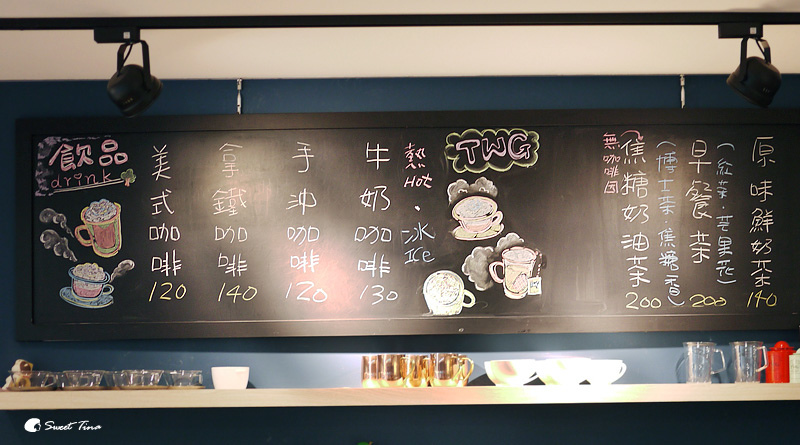 飲品
drink
美式咖啡 120
拿鐵咖啡 140
手沖咖啡 120
牛奶咖啡 130
熱 Hot
·
冰 ICE
TWG
無咖啡因
焦糖奶油茶 200
(博士茶·焦糖香)
早餐茶 200
(紅茶·芒果花)
原味鮮奶茶 140
Sweet Tina